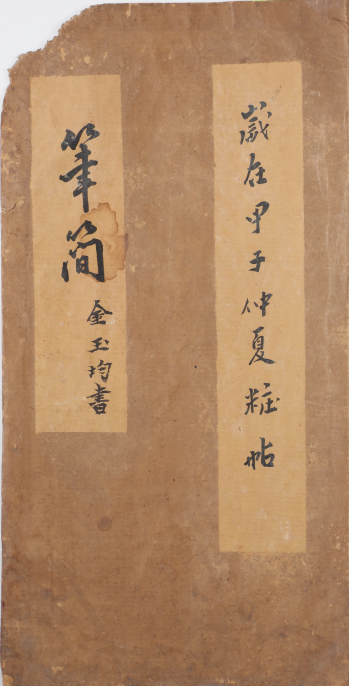 歲在甲子仲夏粧帖
筆簡
金玉均書